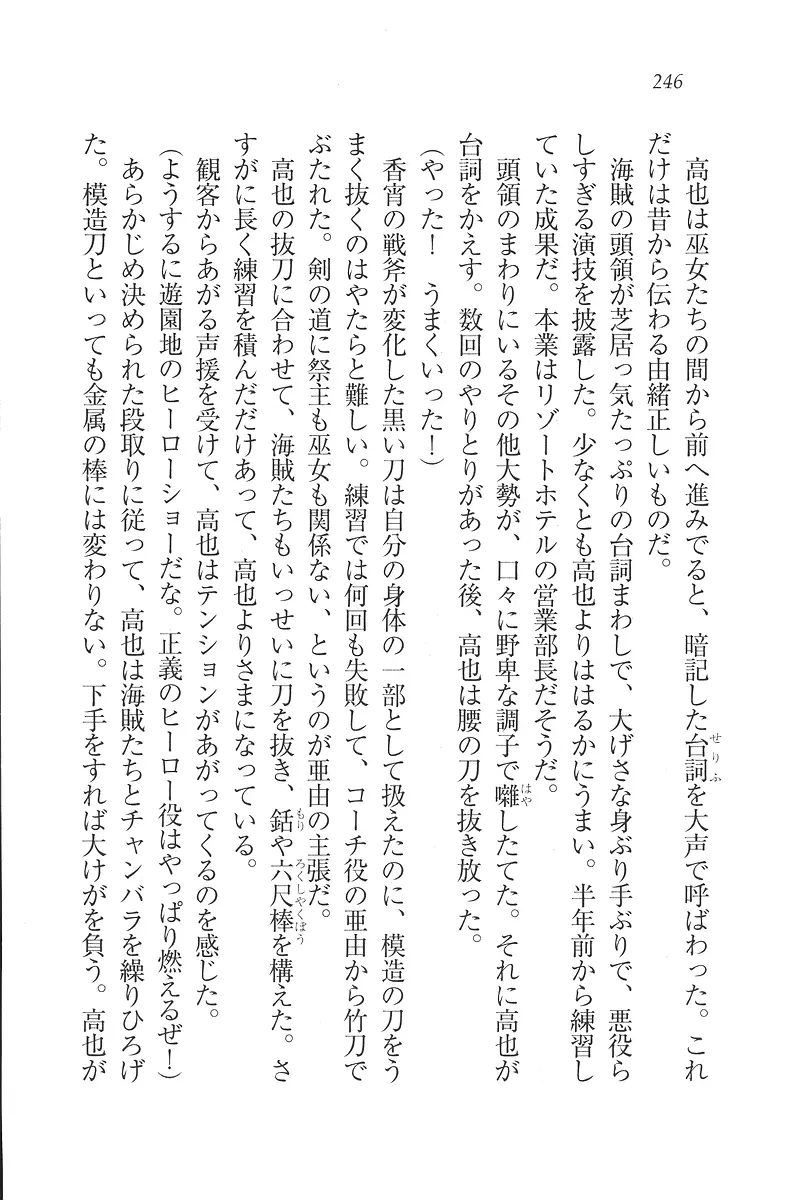 246
高也は巫女たちの間から前へ進みでると、暗記した台詞を大声で呼ばわった。これ
だけは昔から伝わる由緒正しいものだ。
海賊の頭領が芝居っ気たっぷりの台詞まわしで、大げさな身ぶり手ぶりで、悪役ら
しすぎる演技を披露した。少なくとも高也よりははるかにうまい。半年前から練習し
ていた成果だ。本業はリゾートホテルの営業部長だそうだ。
頭領のまわりにいるその他大勢が、口々に野卑な調子で囃したてた。それに高也が
台詞をかえす。数回のやりとりがあった後、高也は腰の刀を抜き放った。
(やった! うまくいった!)
香宵の戦斧が変化した黒い刀は自分の身体の一部として扱えたのに、模造の刀をう
まく抜くのはやたらと難しい。練習では何回も失敗して、コーチ役の亜由から竹刀で
ぶたれた。剣の道に祭主も巫女も関係ない、というのが亜由の主張だ。
高也の抜刀に合わせて、海賊たちもいっせいに刀を抜き、銛や六尺棒を構えた。さ
すがに長く練習を積んだだけあって、高也よりさまになっている。
観客からあがる声援を受けて、高也はテンションがあがってくるのを感じた。
(ようするに遊園地のヒーローショーだな。正義のヒーロー役はやっぱり燃えるぜ!)
あらかじめ決められた段取りに従って、高也は海賊たちとチャンバラを繰りひろげ
た。模造刀といっても金属の棒には変わりない。下手をすれば大けがを負う。高也が